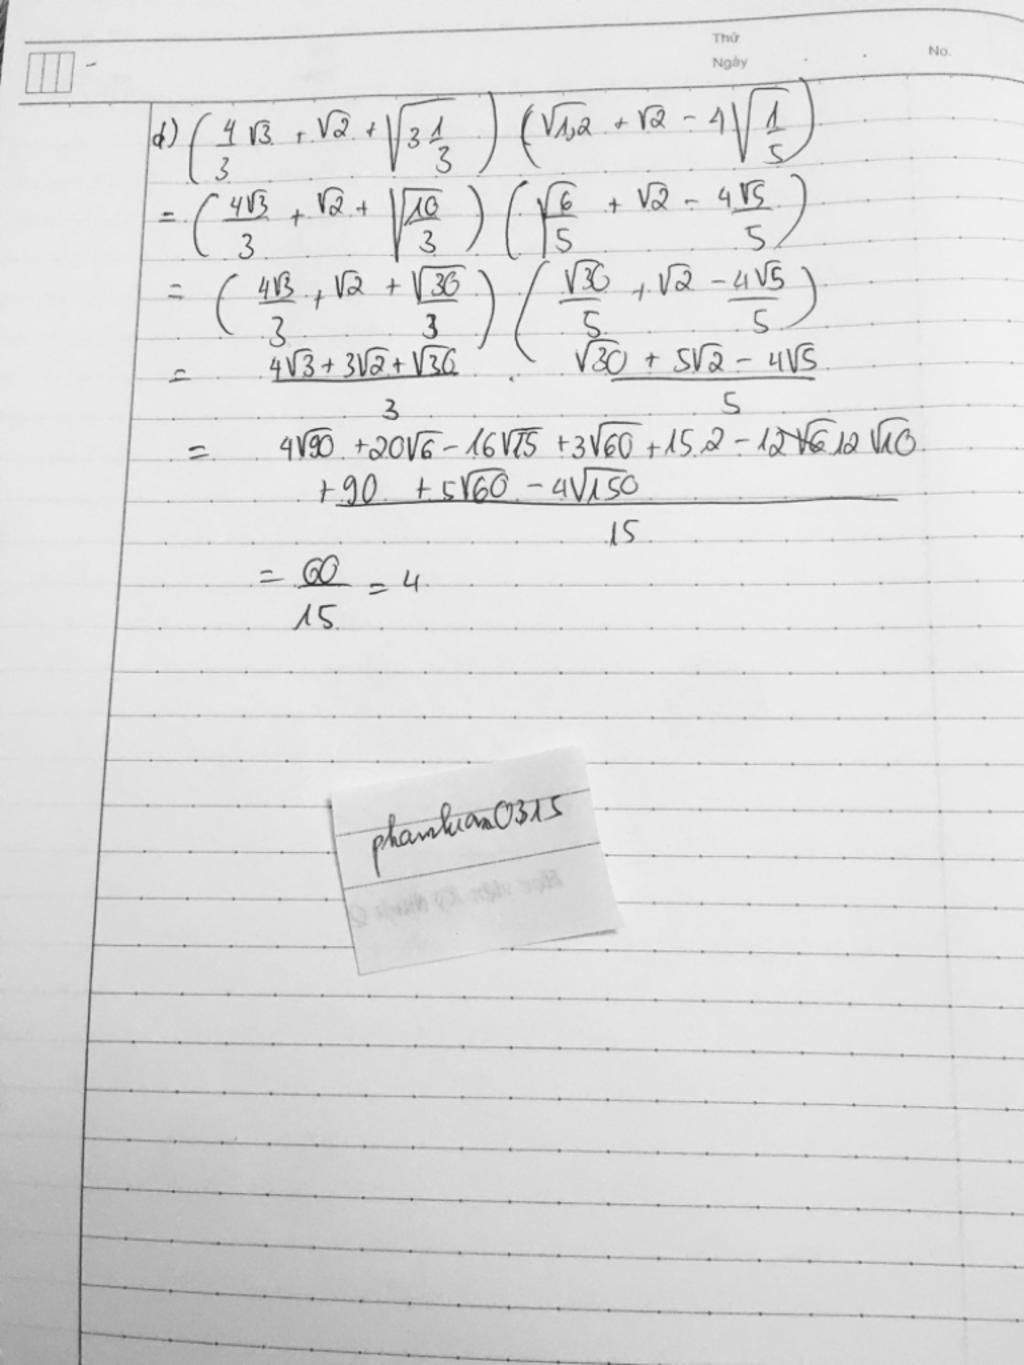 Thứ
Ngày
No.
d) (4/3 √3 + √2 + √(3 1/3)) (√1,2 + √2 - 4√(1/5))
= (4√3/3 + √2 + √(10/3)) (√(6/5) + √2 - 4√5/5)
= (4√3/3 + √2 + √30/3) (√30/5 + √2 - 4√5/5)
= (4√3 + 3√2 + √30)/3 . (√30 + 5√2 - 4√5)/5
= 4√90 + 20√6 - 16√15 + 3√60 + 15.2 - 12√10
+ 90 + 5√60 - 4√150
15
= 60/15 = 4